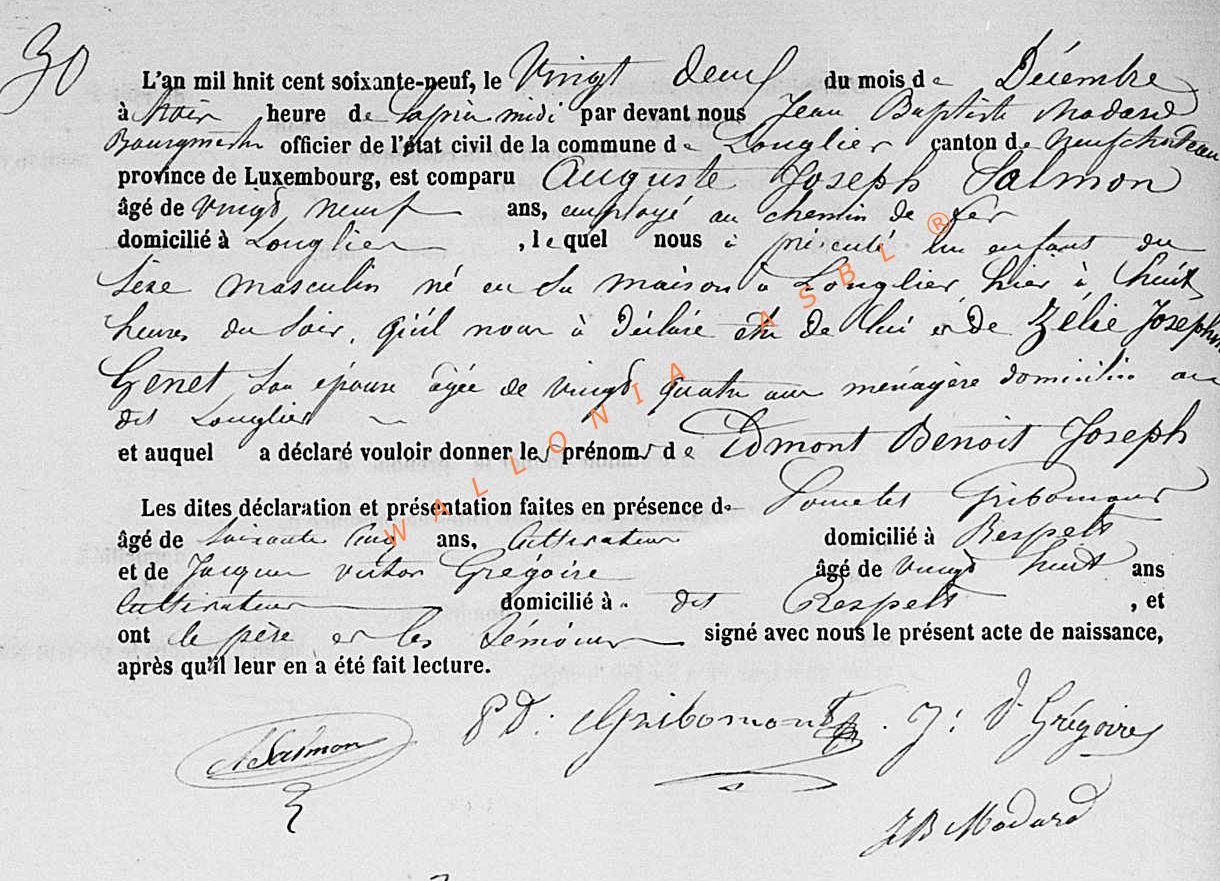 30
L'an mil huit cent soixante-neuf, le Vingt deux du mois de Décembre
à trois heure de laprès midi par devant nous Jean Baptiste Modard
Bourgmestre officier de l'état civil de la commune de Longlier canton de Neufchateau
province de Luxembourg, est comparu Auguste Joseph Salmon
âgé de vingt neuf ans, employé au chemin de fer
domicilié à Longlier, lequel nous à présenté un enfant du
Sexe masculin né en sa maison à Longlier, hier à huit
heures du soir, qu'il nous à déclaré être de lui et de Zélie Josephine
Genet son épouse agée de vingt quatre ans ménagère domiciliée au
dit Longlier
et auquel a déclaré vouloir donner les prénoms de Edmont Benoit Joseph
Les dites déclaration et présentation faites en présence de Gribomont
âgé de Soixante cinq ans, Cultivateur domicilié à Respelt
et de Jacques victor Grégoire âgé de vingt huit ans
Cultivateur domicilié à dit Respelt, et
ont le père et les témoins signé avec nous le présent acte de naissance,
après qu'il leur en a été fait lecture.
P D. Gribomont. J: V Grégoire
A Salmon
J B Modard
WALLONIA ASBL ®